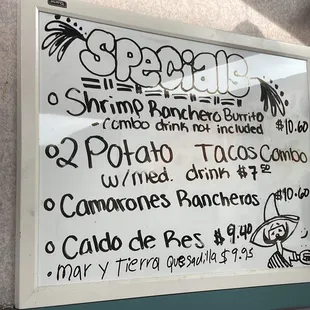 Specials
Shrimp Ranchero Burrito
- combo drink not included $10.60
2 Potato Tacos Combo
w/med. drink $7.50
Camarones Rancheros $10.60
Caldo de Res $9.40
Mar y Tierra Quesadilla $9.95